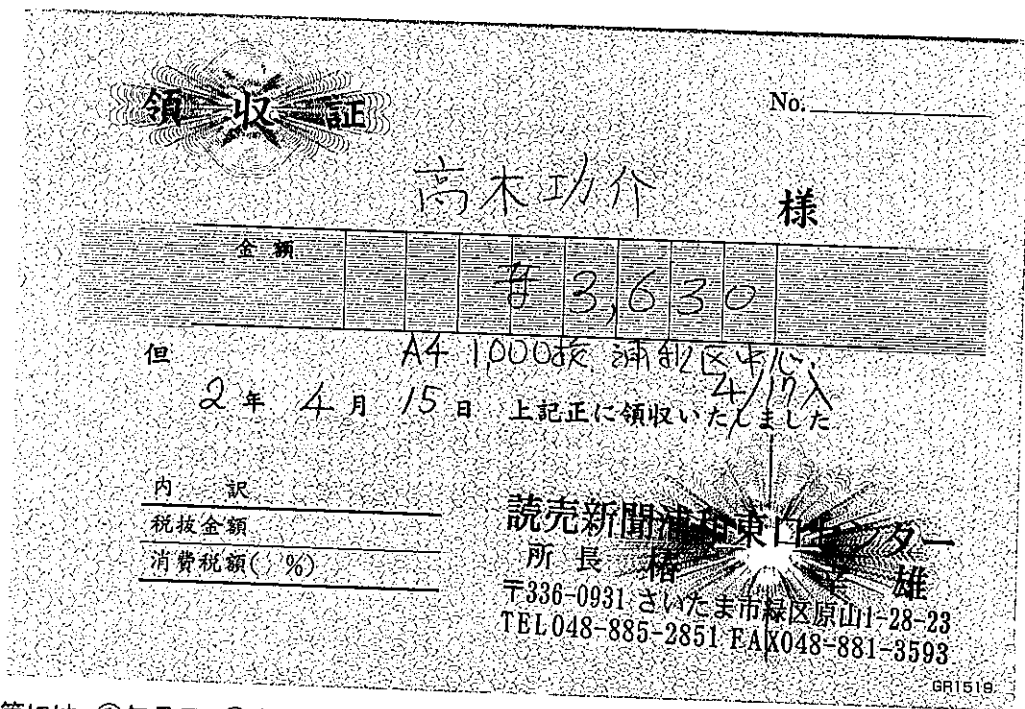 領収証
No.
高木功介 様
金額 ¥3,630
但 A4 1,000枚 浦和区中心
4/17入
2年 4月 15日 上記正に領収いたしました
内 訳
税抜金額
消費税額( %)
読売新聞浦和東口センター
所長 椿 雄
〒336-0931 さいたま市緑区原山1-28-23
TEL048-885-2851 FAX048-881-3593
GR1519